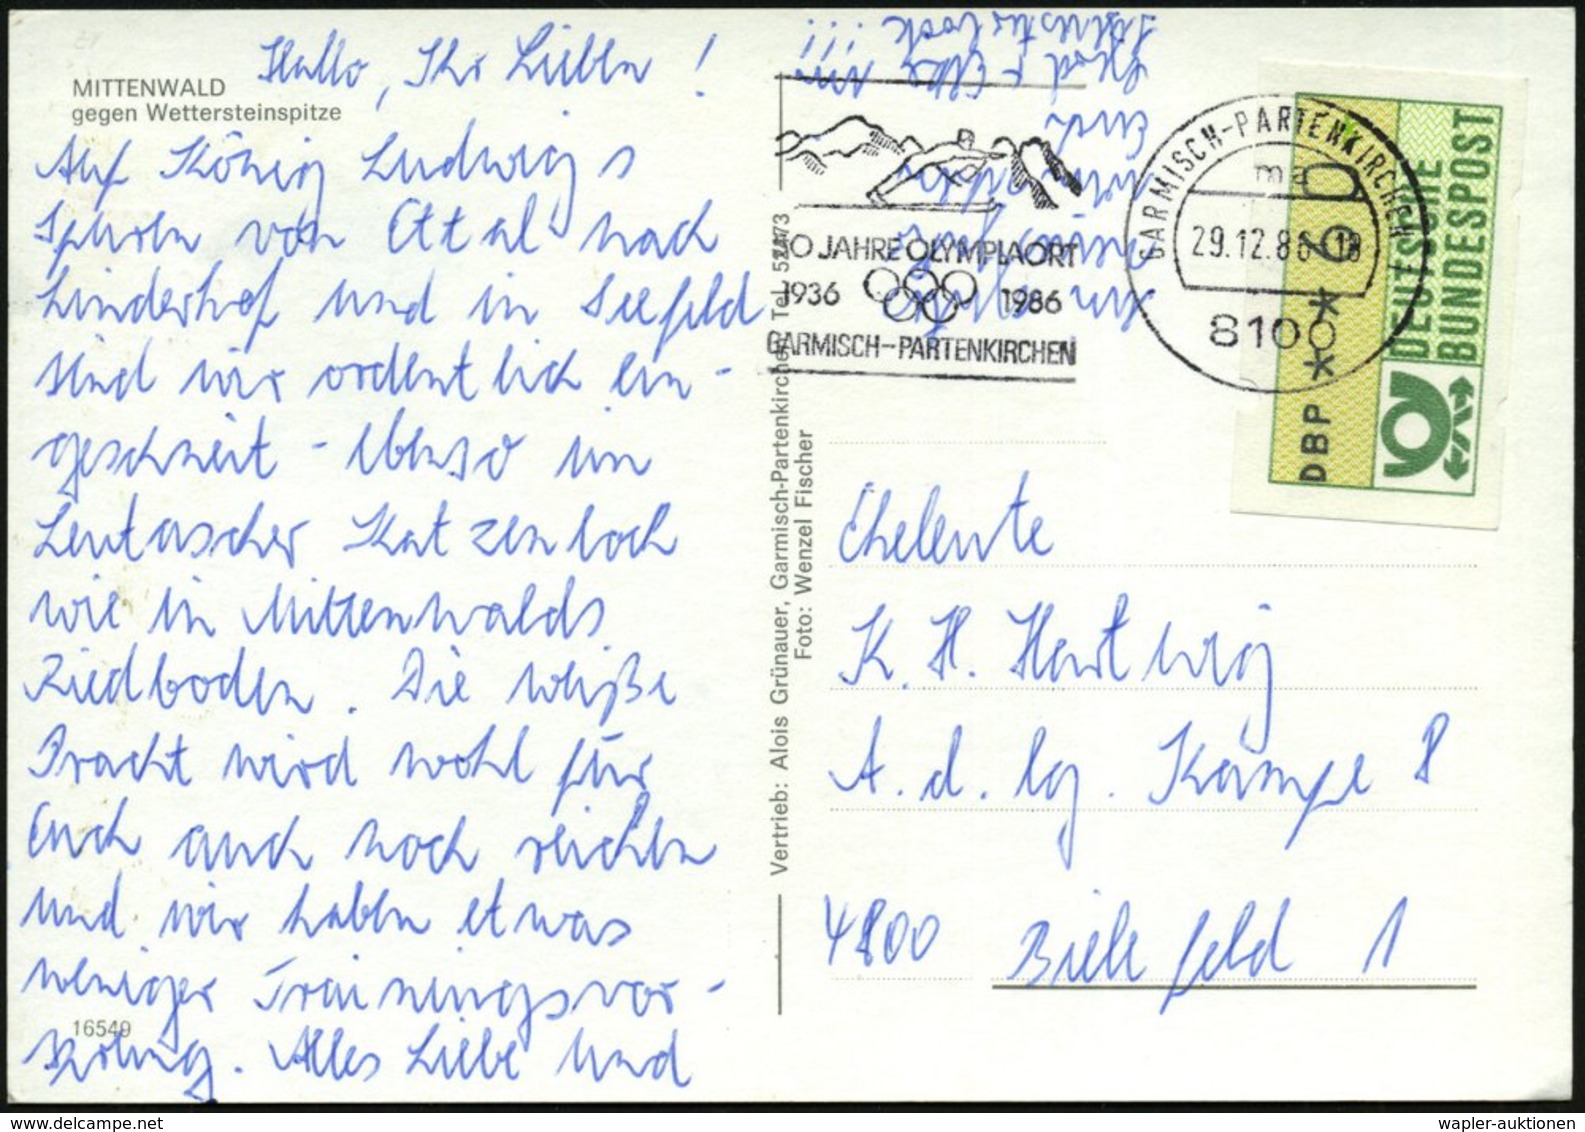 Hallo, Ihr Lieben!
MITTENWALD
gegen Wettersteinspitze
Auf König Ludwigs
Spuren von Ettal nach
Linderhof und in Seefeld
sind wir ordentlich ein-
geschneit - ebenso im
Leutascher Katzenloch
wie in Mittenwalds
Riedboden. Die weiße
Pracht wird wohl für
Euch auch noch reichen
und wir haben etwas
weniger Trainingsvor-
sprung. Alles Liebe und
16549
Euch
Vertrieb: Alois Grünauer, Garmisch-Partenkirchen, Tel.
Foto: Wenzel Fischer
JAHRE OLYMPIAORT
1936 1986
GARMISCH-PARTENKIRCHEN
GARMISCH-PARTENKIRCHEN 1
ma
29.12.86
8100
DEUTSCHE
BUNDESPOST
DBP
Eheleute
K. H. Hartwig
A. d. lg. Kämpe 8
4800 Bielefeld 1
wapler-auktionen